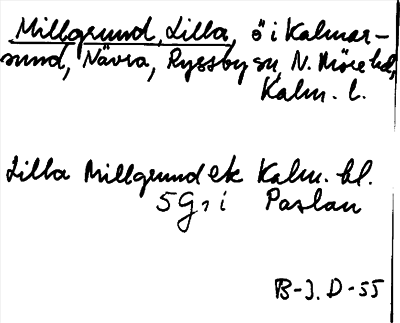 Millgrund, Lilla, ö i Kalmar-
sund, Nävra, Ryssby sn, N. Möre hd,
Kalm. l.
Lilla Millgrund ek Kalm. bl.
5G, i Paslau
B-J. D-55